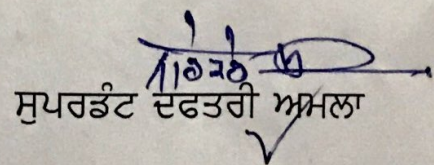 ਸੁਪਰਡੰਟ ਦਫਤਰੀ ਅਮਲਾ